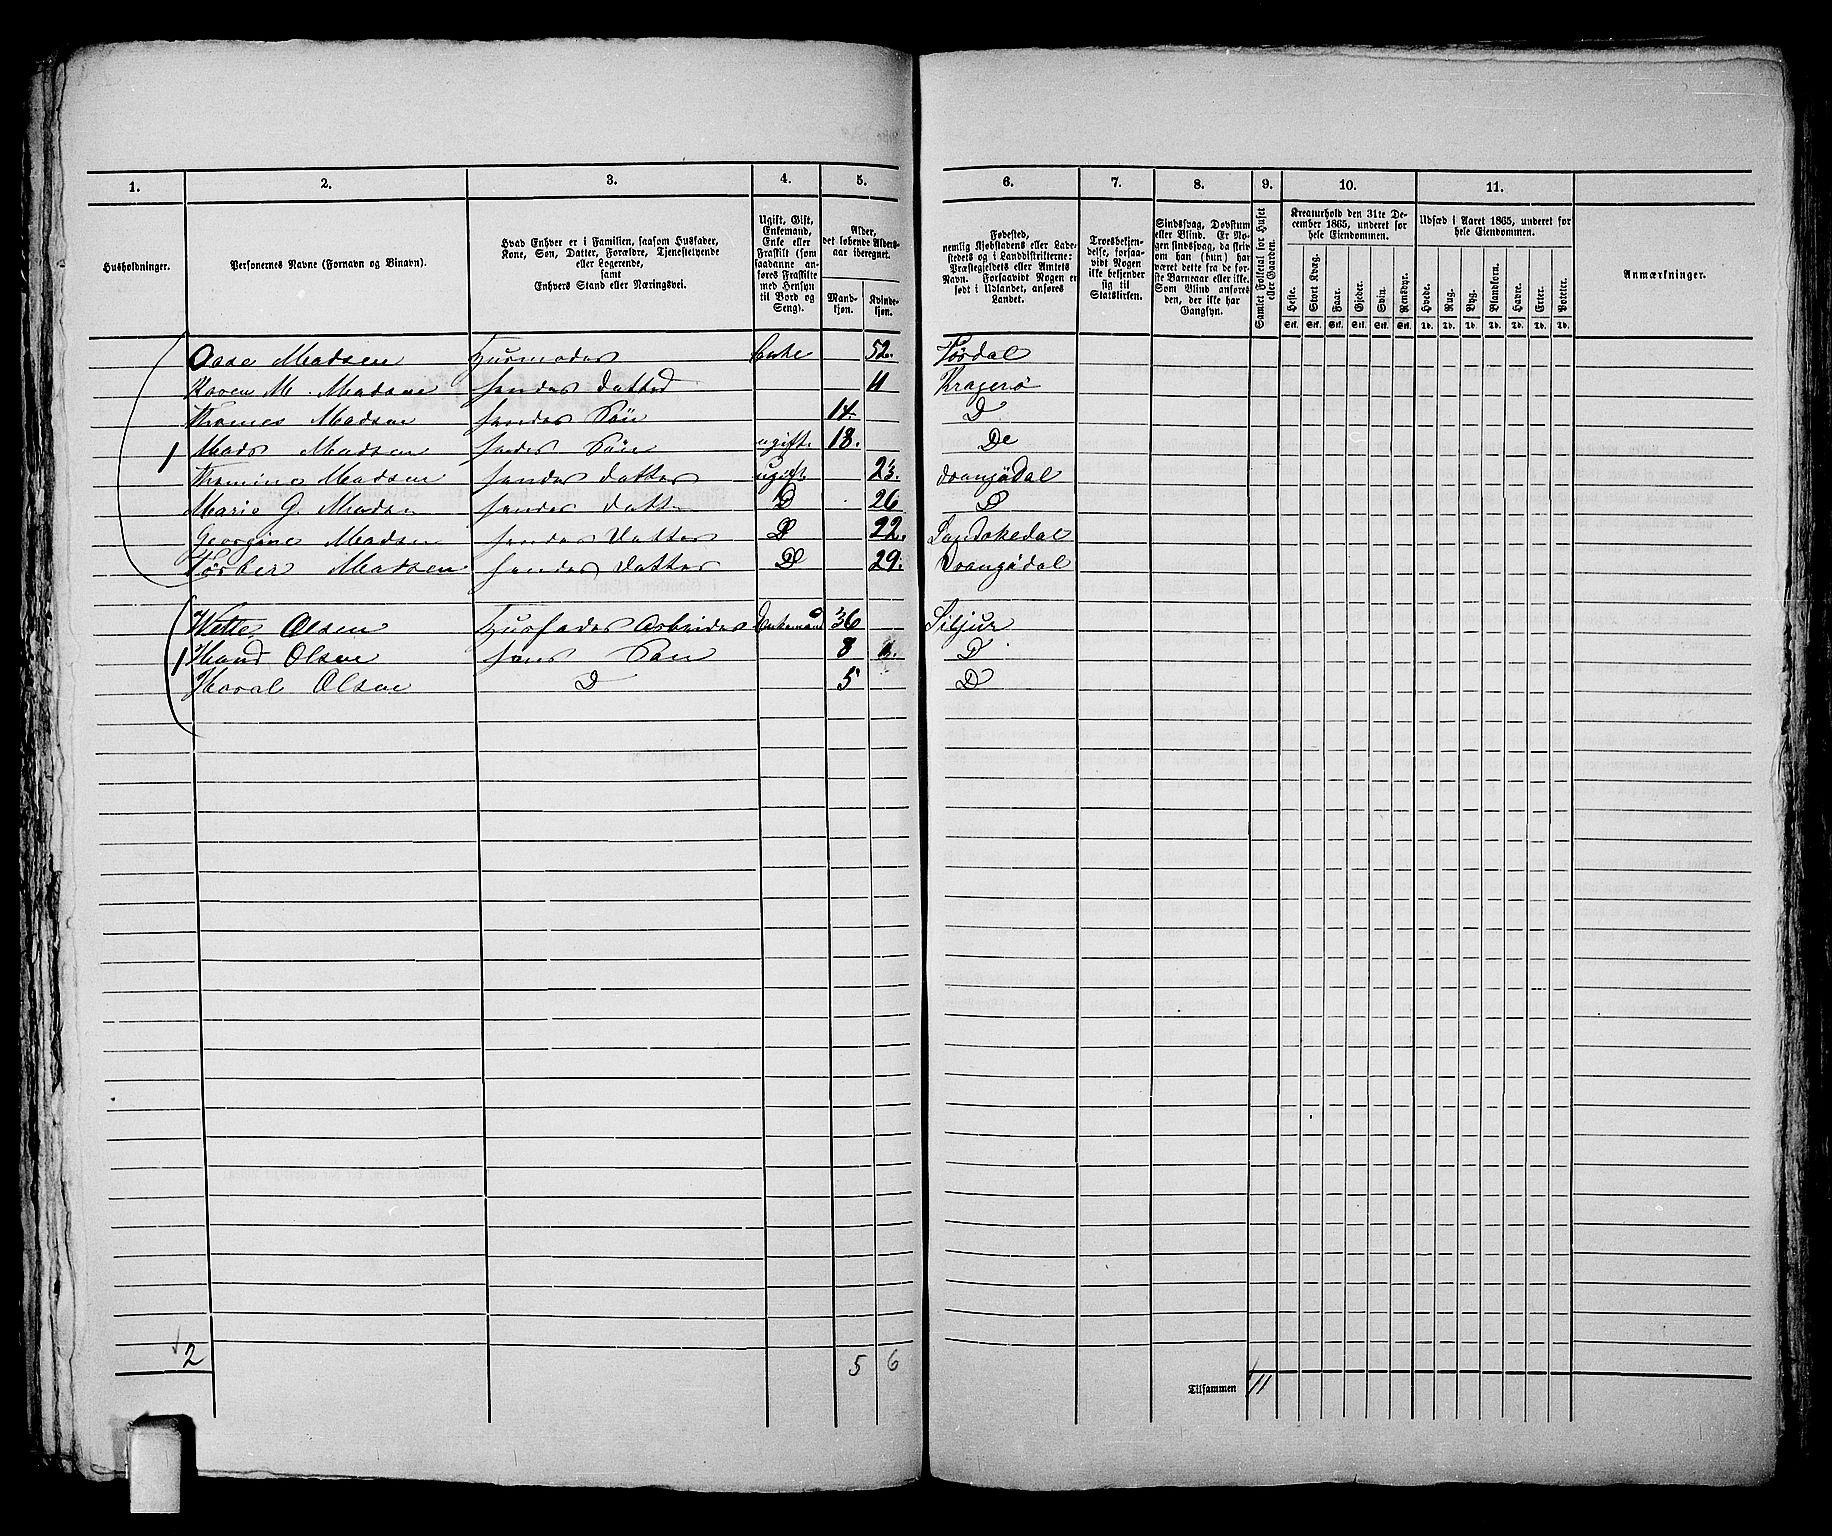 1. 2. 3. 4. 5. 6. 7. 8. 9. 10. 11.
Husholdninger.
Personernes Navne (Fornavn og Binavn).
Hvad Enhver er i Familien, saasom Husfader,
Kone, Søn, Datter, Forældre, Tjenestetyende
eller Logerende,
samt
Enhvers Stand eller Næringsvei.
Ugift, Gift,
Enkemand,
Enke eller
Fraskilt (som
saadanne an-
føres Fraskilte
med Hensyn
til Bord og
Seng).
Alder,
det løbende Alders-
aar iberegnet.
Mand-
kjøn.
Kvinde-
kjøn.
Fødested,
nemlig Kjøbstadens eller Lade-
stedets og i Landdistrikterne:
Præstegjeldets eller Amtets
Navn. Forsaavidt Nogen er
født i Udlandet, anføres
Landet.
Troesbekjen-
delse, forsaa-
vidt Nogen
ikke bekjender
sig til
Statskirken.
Sindssvag, Døvstum
eller Blind. Er No-
gen sindssvag, da skriv
om han (hun) har
været dette fra de før-
ste Barneaar eller ikke.
Som Blind anføres
den, der ikke har
Gangsyn.
Samlet Folketal for Huset
eller Gaarden.
Kreaturhold den 31te De-
cember 1865, underet for
hele Eiendommen.
Heste. Stort Kvæg. Faar. Gjeder. Svin. Rensdyr.
Stk. Stk. Stk. Stk. Stk. Stk.
Udsæd i Aaret 1865, underet for
hele Eiendommen.
Hvede. Rug. Byg. Blandkorn. Havre. Erter. Poteter.
Td. Td. Td. Td. Td. Td. Td.
Anmærkninger.
Aase Madsen Husmoder Enke 52. Tørdal
Karen M. Madsen hendes datter 11 Kragerø
Thomes Madsen hendes Søn 14. D
1 Mads Madsen hendes Søn ugift. 18. Do
Thomine Madsen hendes datter ugift. 23. drangødal
Marie G. Madsen hendes datter D 26 D
Georgine Madsen hendes datter D 22. Sandøkedal
Torber Madsen hendes datter D 29. Drangødal
Olsen Husfader Arbeider Enkemand 36 Siljur
1 Olsen hans Søn 8 D
Olsen D 5 D
2 5 6
Tilsammen 11